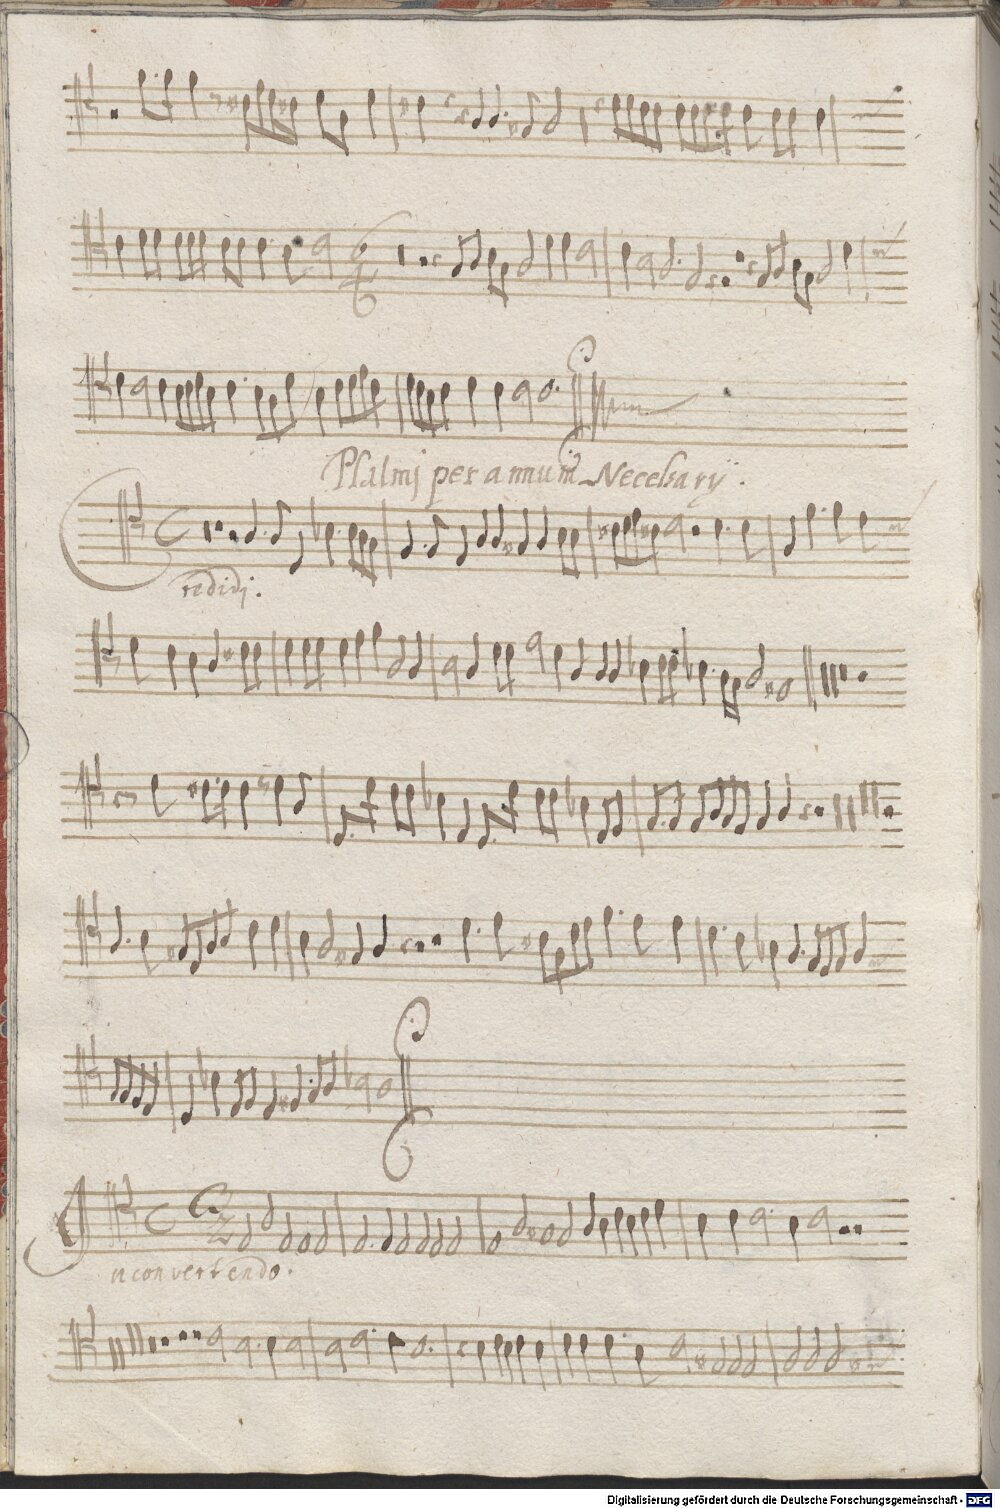 Psalmj per annum Necessarÿ.
Credidj.
Jn convertendo.
Digitalisierung gefördert durch die Deutsche Forschungsgemeinschaft - DFG